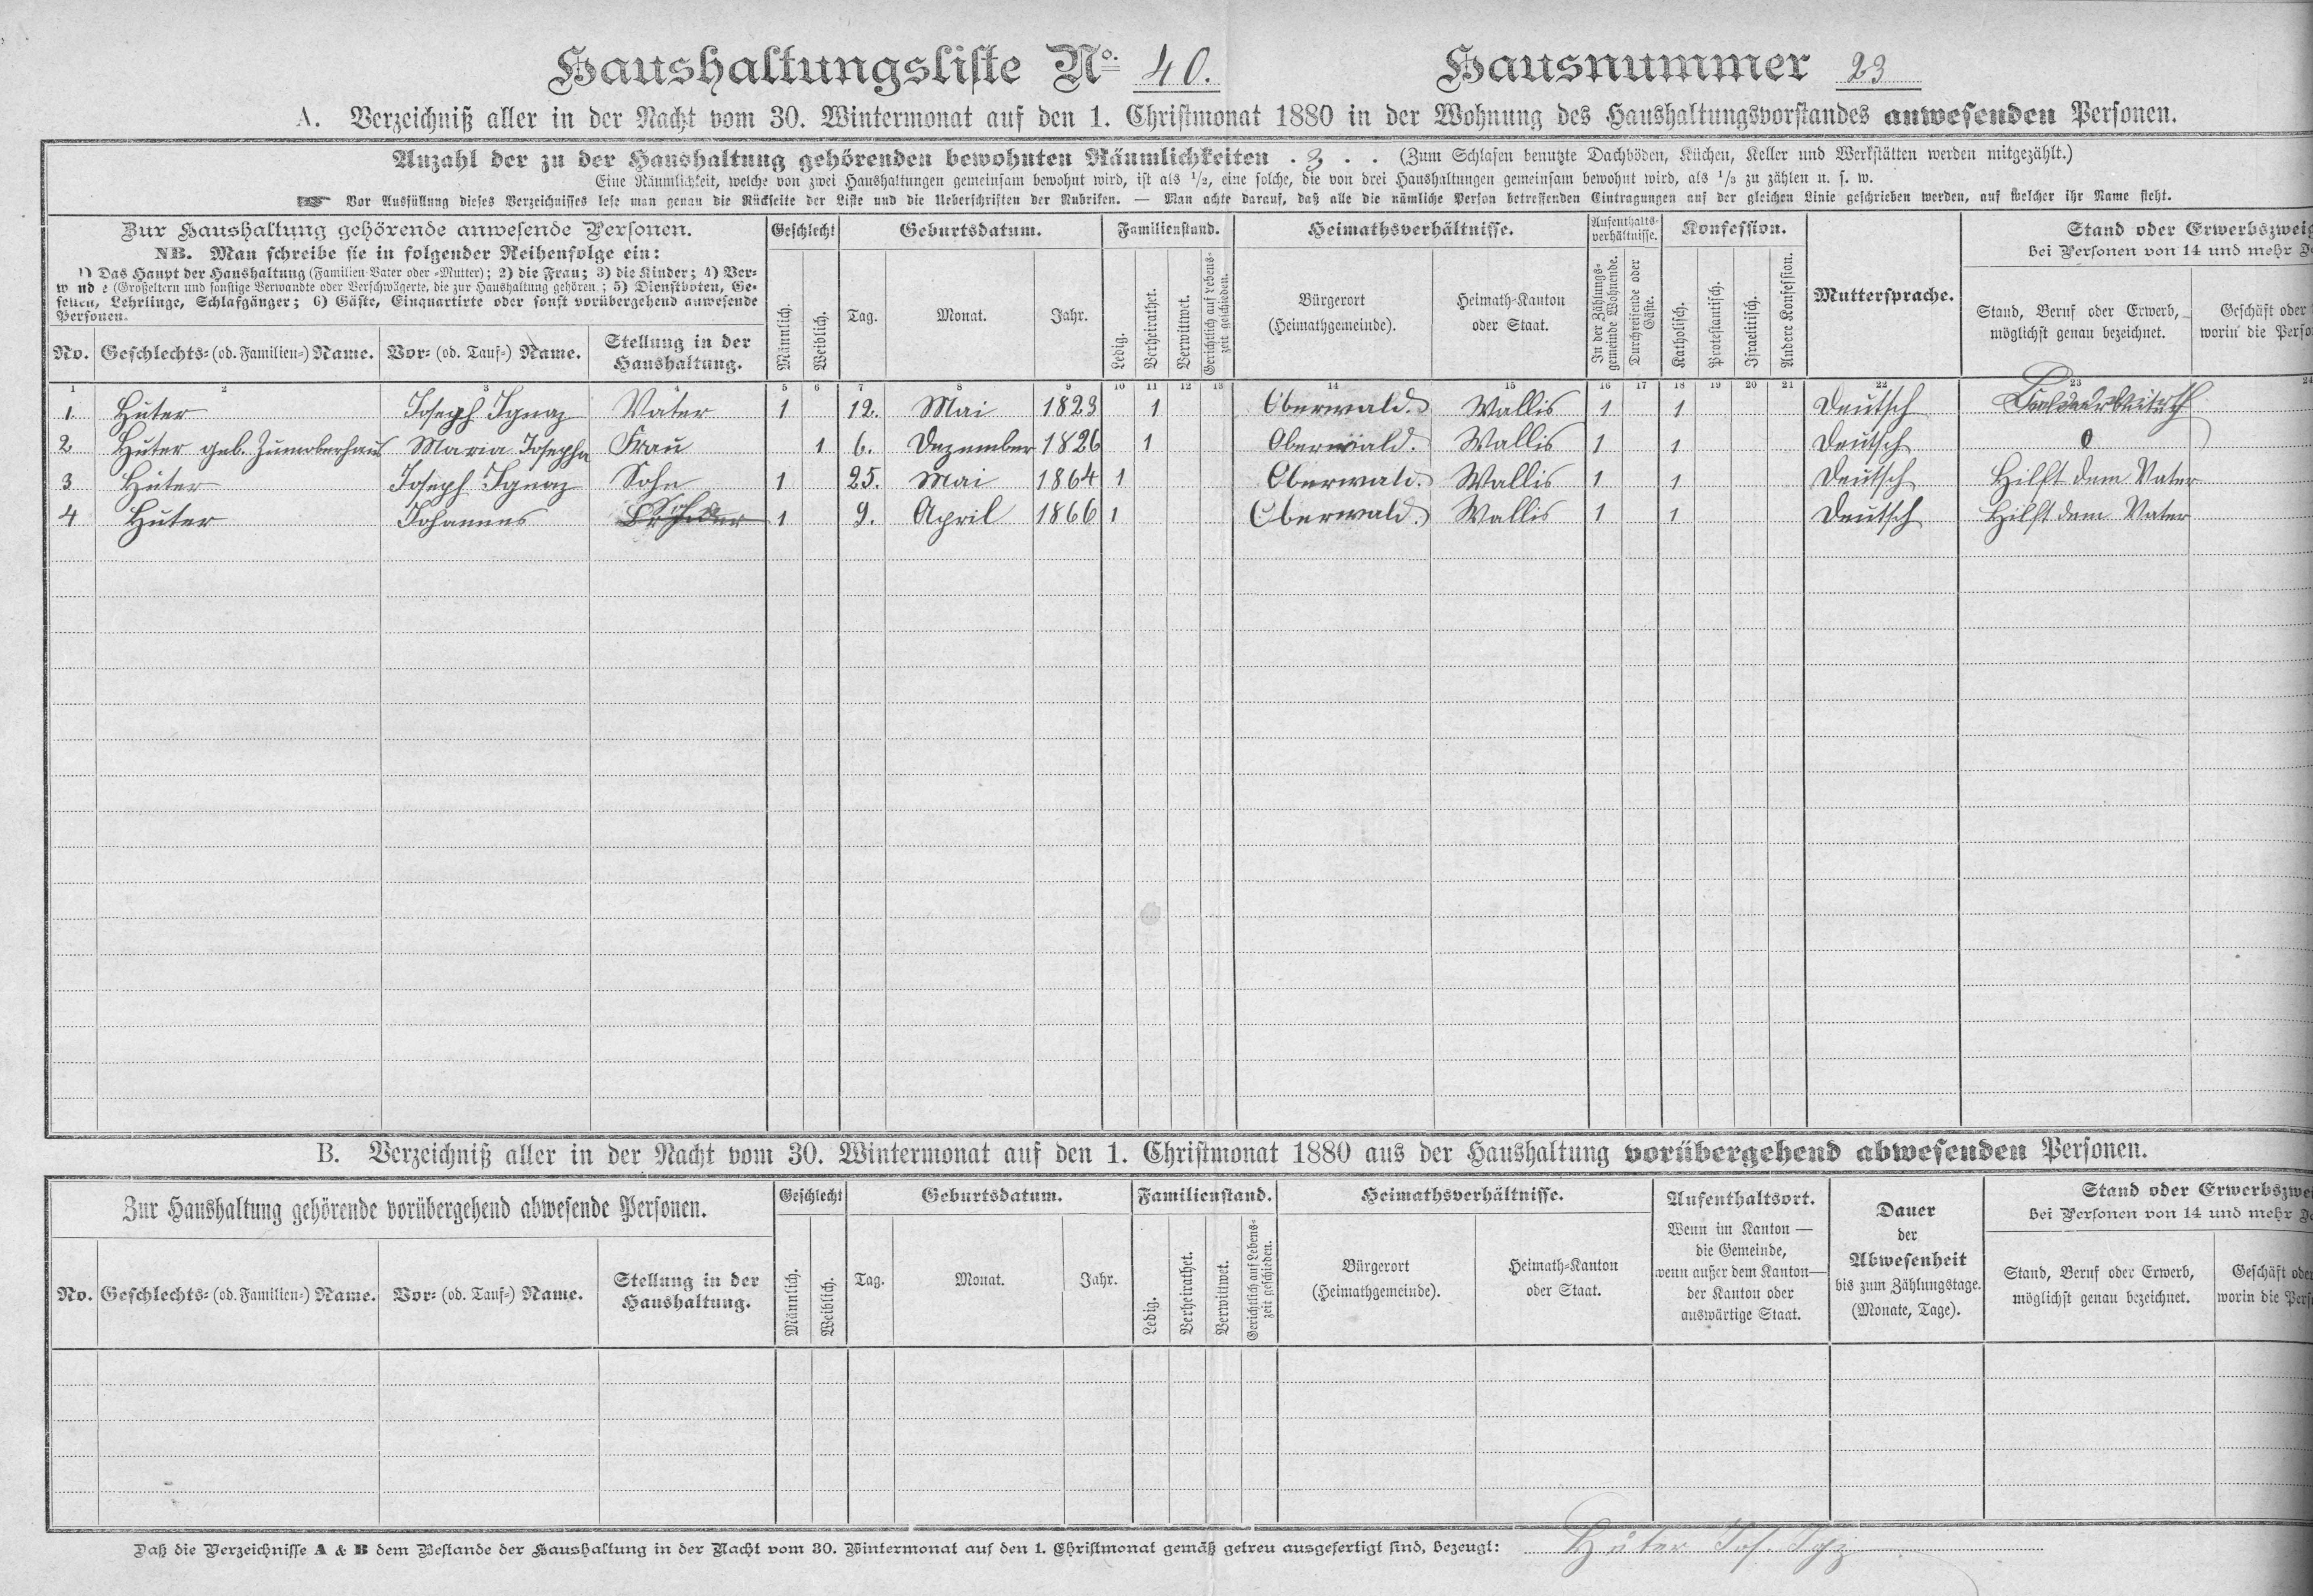 Haushaltungsliste No. 40. Hausnummer 23
A. Verzeichniß aller in der Nacht vom 30. Wintermonat auf den 1. Christmonat 1880 in der Wohnung des Haushaltungsvorstandes anwesenden Personen.
Anzahl der zu der Haushaltung gehörenden bewohnten Räumlichkeiten . 3 . . (Zum Schlafen benutzte Dachböden, Küchen, Keller und Werkstätten werden mitgezählt.)
Eine Räumlichkeit, welche von zwei Haushaltungen gemeinsam bewohnt wird, ist als 1/2, eine solche, die von drei Haushaltungen gemeinsam bewohnt wird, als 1/3 zu zählen u. s. w.
☞ Vor Ausfüllung dieses Verzeichnisses lese man genau die Rückseite der Liste und die Ueberschriften der Rubriken. — Man achte darauf, daß alle die nämliche Person betreffenden Eintragungen auf der gleichen Linie geschrieben werden, auf welcher ihr Name steht.
Zur Haushaltung gehörende anwesende Personen.
NB. Man schreibe sie in folgender Reihenfolge ein:
1) Das Haupt der Haushaltung (Familien-Vater oder -Mutter); 2) die Frau; 3) die Kinder; 4) Ver-
w nd e (Großeltern und sonstige Verwandte oder Verschwägerte, die zur Haushaltung gehören); 5) Dienstboten, Ge-
sellen, Lehrlinge, Schlafgänger; 6) Gäste, Einquartirte oder sonst vorübergehend anwesende
Personen.
No. Geschlechts- (od. Familien-) Name. Vor- (od. Tauf-) Name. Stellung in der
Haushaltung.
Geschlecht
Männlich.
Weiblich.
Geburtsdatum.
Tag. Monat. Jahr.
Familienstand.
Ledig.
Verheirathet.
Verwittwet.
Gerichtlich auf Lebens-
zeit geschieden.
Heimathsverhältnisse.
Bürgerort
(Heimathgemeinde).
Heimath-Kanton
oder Staat.
Aufenthalts-
verhältnisse.
In der Zählungs-
gemeinde Wohnende.
Durchreisende oder
Gäste.
Konfession.
Katholisch.
Protestantisch.
Israelitisch.
Andere Konfession.
Muttersprache.
Stand oder Erwerbszweig
bei Personen von 14 und mehr
Stand, Beruf oder Erwerb,
möglichst genau bezeichnet.
Geschäft oder
worin die
1 2 3 4 5 6 7 8 9 10 11 12 13 14 15 16 17 18 19 20 21 22 23 24
1. Huter Joseph Ignaz Vater 1 12. Mai 1823 1 Oberwald. Wallis 1 1 Deutsch
2 Huter geb. Zumoberhaus Maria Josepha Frau 1 6. Dezember 1826 1 Oberwald. Wallis 1 1 Deutsch 0
3 Huter Joseph Ignaz Sohn 1 25. Mai 1864 1 Oberwald. Wallis 1 1 Deutsch Hilft dem Vater
4 Huter Johannes Sohn 1 9. April 1866 1 Oberwald. Wallis 1 1 Deutsch Hilft dem Vater
B. Verzeichniß aller in der Nacht vom 30. Wintermonat auf den 1. Christmonat 1880 aus der Haushaltung vorübergehend abwesenden Personen.
Zur Haushaltung gehörende vorübergehend abwesende Personen.
No. Geschlechts- (od. Familien-) Name. Vor- (od. Tauf-) Name. Stellung in der
Haushaltung.
Geschlecht
Männlich.
Weiblich.
Geburtsdatum.
Tag. Monat. Jahr.
Familienstand.
Ledig.
Verheirathet.
Verwittwet.
Gerichtlich auf Lebens-
zeit geschieden.
Heimathsverhältnisse.
Bürgerort
(Heimathgemeinde).
Heimath-Kanton
oder Staat.
Aufenthaltsort.
Wenn im Kanton —
die Gemeinde,
wenn außer dem Kanton—
der Kanton oder
auswärtige Staat.
Dauer
der
Abwesenheit
bis zum Zählungstage.
(Monate, Tage).
Stand oder
bei Personen von 14 und mehr
Stand, Beruf oder Erwerb,
möglichst genau bezeichnet.
Geschäft oder
worin die
Daß die Verzeichnisse A & B dem Bestande der Haushaltung in der Nacht vom 30. Wintermonat auf den 1. Christmonat gemäß getreu ausgefertigt sind, bezeugt: Huter Jos. Igz